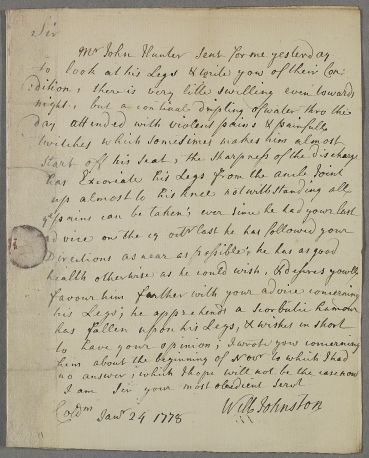 Sir
Mr John Hunter sent for me yesterday
to look at his Legs & write you of their Con
=dition, there is very litle swelling even towards
night, but a continual dripling of water thro the
day attended with violent pains & painfull
twitches which sometimes makes him almost
start off his seat, the sharpness of the discharge
has Excoriate his Legs from the ancle Joint
up almost to his knee notwithstanding all
ye pains can be taken; ever since he had your last
advice on the 19 octr last he has followed your
Directions as near as possible, he has as good
health otherwise as he could wish, & desires you'll
favour him further with your advice concerning
his Legs; he apprehends a Scorbutic humour
has fallen upon his Legs, & wishes in short
to have your opinion; I wrote you concerning
him about the beginning of Novr to which I had
no answer; which I hope will not be the case now
I am Sir your most obedient Servt
Janr 24 1778 Will Johnston